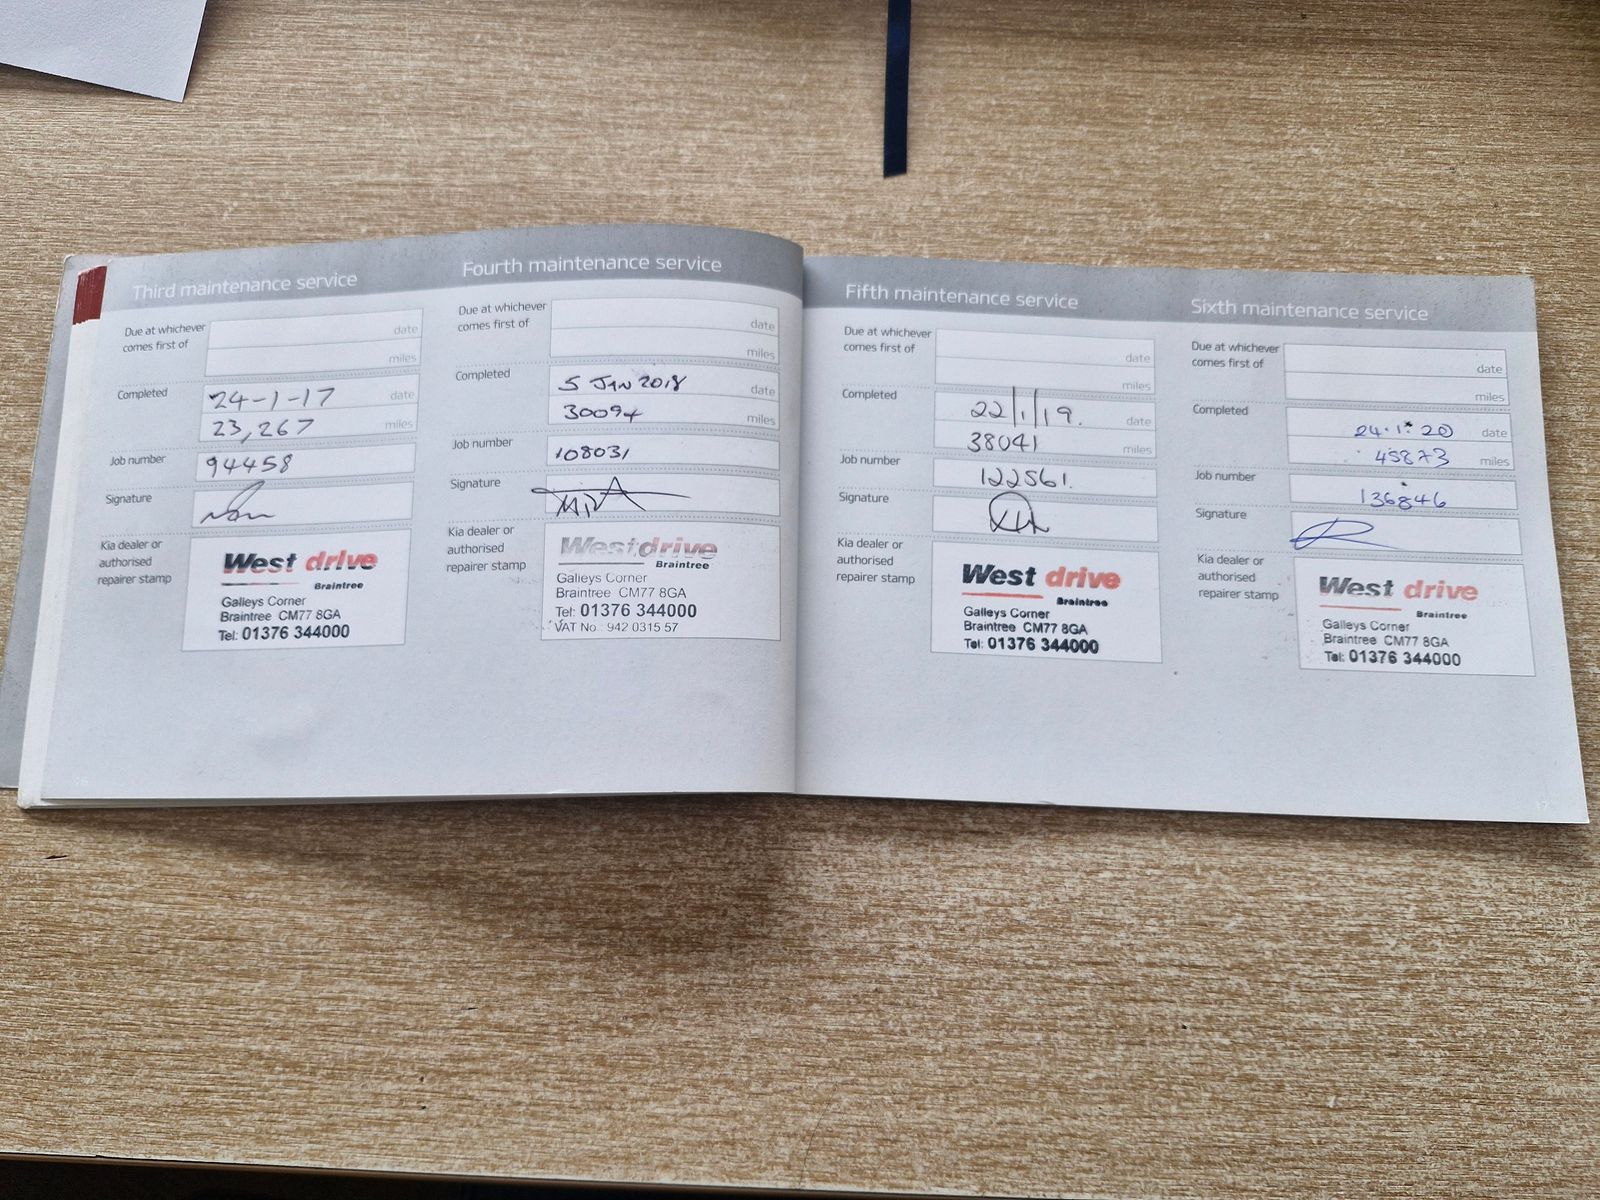 Third maintenance service
Due at whichever
comes first of
date
miles
Completed
24-1-17 date
23,267 miles
Job number
94458
Signature
Kia dealer or
authorised
repairer stamp
West drive
Braintree
Galleys Corner
Braintree CM77 8GA
Tel: 01376 344000
Fourth maintenance service
Due at whichever
comes first of
date
miles
Completed
5 JAN 2018 date
30094 miles
Job number
108031
Signature
Kia dealer or
authorised
repairer stamp
Westdrive
Braintree
Galleys Corner
Braintree CM77 8GA
Tel: 01376 344000
VAT No.: 942 0315 57
Fifth maintenance service
Due at whichever
comes first of
date
miles
Completed
22/1/19. date
38041 miles
Job number
122561.
Signature
Kia dealer or
authorised
repairer stamp
West drive
Braintree
Galleys Corner
Braintree CM77 8GA
Tel: 01376 344000
17
Sixth maintenance service
Due at whichever
comes first of
date
miles
Completed
24.1.20 date
45873 miles
Job number
136846
Signature
Kia dealer or
authorised
repairer stamp
West drive
Braintree
Galleys Corner
Braintree CM77 8GA
Tel: 01376 344000